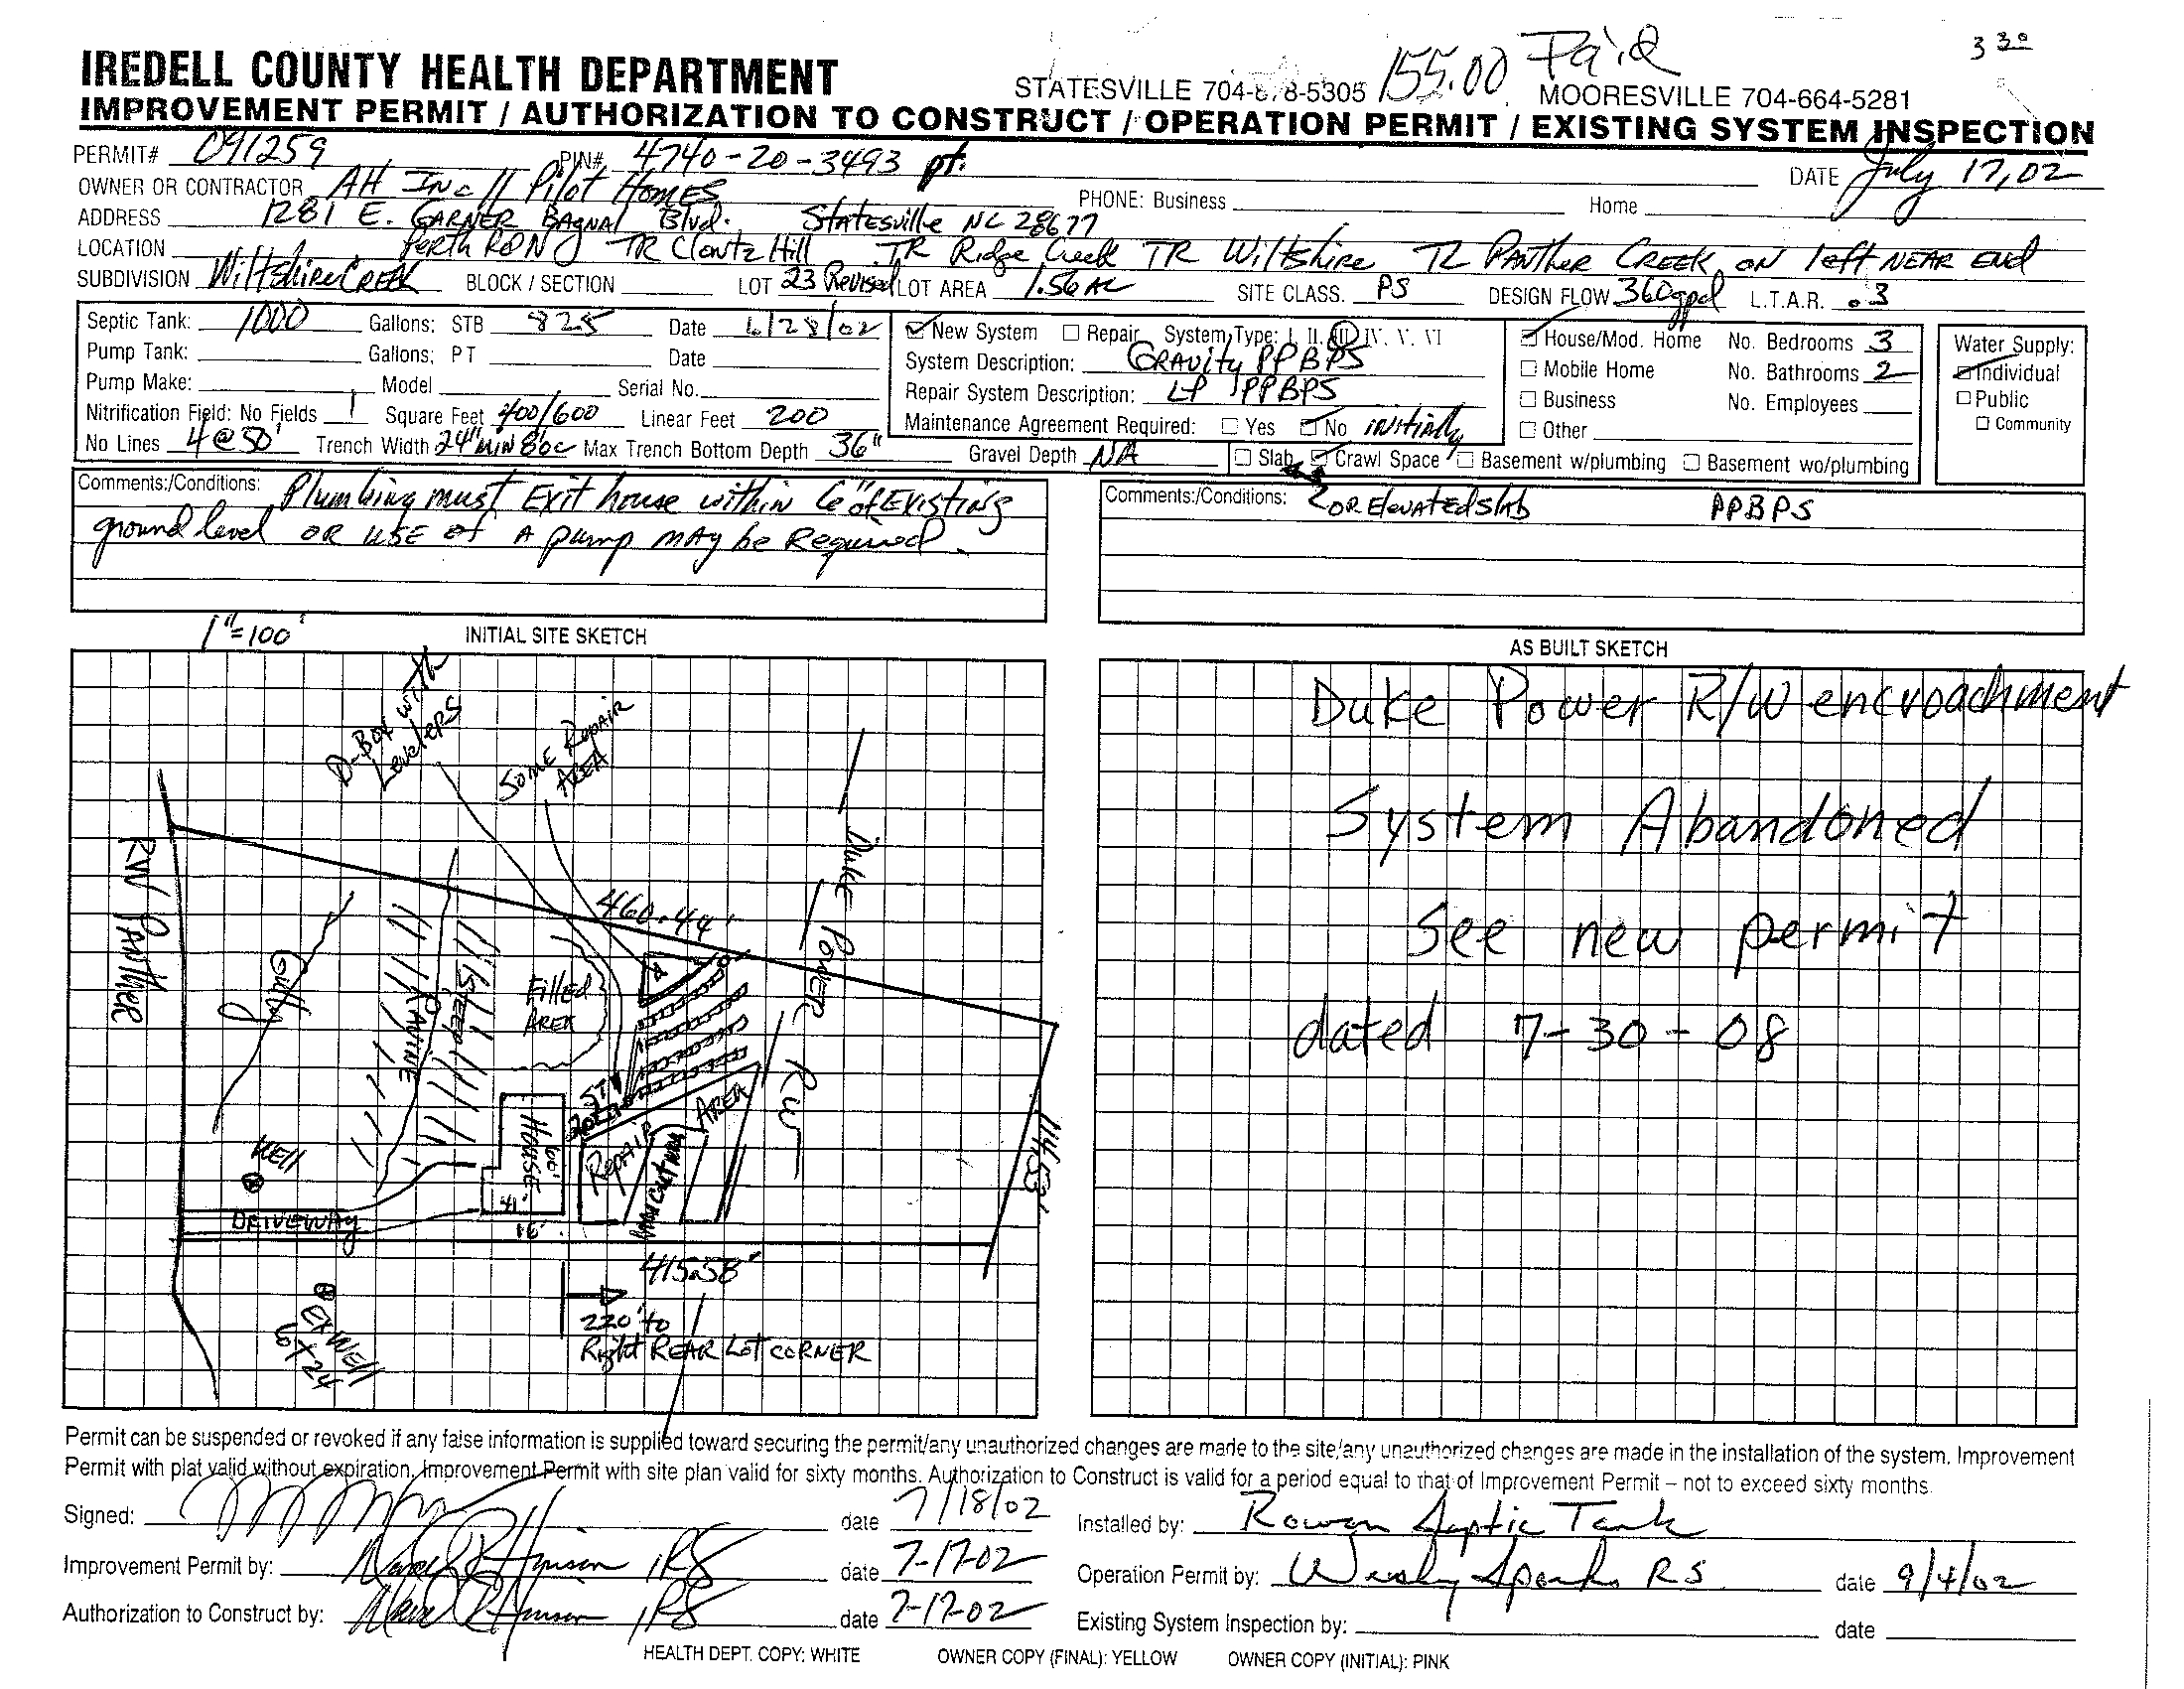 155.00 Paid
3 30
IREDELL COUNTY HEALTH DEPARTMENT STATESVILLE 704-878-5305 MOORESVILLE 704-664-5281
IMPROVEMENT PERMIT / AUTHORIZATION TO CONSTRUCT / OPERATION PERMIT / EXISTING SYSTEM INSPECTION
PERMIT# 091259 PIN# 4740-20-3493 pt. DATE July 17, 02
OWNER OR CONTRACTOR AH Inc // Pilot Homes PHONE: Business Home
ADDRESS 1281 E. GARNER BAGNAL Blvd. Statesville NC 28677
LOCATION Perth Rd N TR Clontz Hill TR Ridge Creek TR Wiltshire TL PANTHER CREEK ON left NEAR END
SUBDIVISION Wiltshire CREEK BLOCK / SECTION LOT 23 Revised LOT AREA 1.56 AC SITE CLASS. PS DESIGN FLOW 360gpd L.T.A.R. .3
Septic Tank: 1000 Gallons: STB 825 Date 6/28/02
Pump Tank: Gallons; PT Date
Pump Make: Model Serial No.
Nitrification Field: No Fields 1 Square Feet 400/600 Linear Feet 200
No Lines 4@50' Trench Width 24" MIN 8'oc Max Trench Bottom Depth 36" Gravel Depth NA
New System Repair System Type: I, II, III, IV, V, VI
System Description: GRAVITY PPBPS
Repair System Description: LP PPBPS
Maintenance Agreement Required: Yes No initially
House/Mod. Home No. Bedrooms 3
Mobile Home No. Bathrooms 2
Business No. Employees
Other
Water Supply:
Individual
Public
Community
Slab Crawl Space Basement w/plumbing Basement wo/plumbing
Comments:/Conditions: Plumbing must Exit house within 6" of EXISTING
ground level OR USE of A pump MAY be Required.
Comments:/Conditions: OR Elevated slab PPBPS
1"=100' INITIAL SITE SKETCH
D-Box with
Levelers
SOME Repair
AREA
Duke POWER R/W
R/W PANTHER
Gully
RAVINE
STEEP
460.44'
Filled
AREA
ST
House
60'
41'
16'
Repair
AREA
WELL
DRIVEWAY
114.53'
415.58'
220' to
Right REAR Lot CORNER
EX WELL
6X24
AS BUILT SKETCH
Duke Power R/W encroachment
System Abandoned
See new permit
dated 7-30-08
Permit can be suspended or revoked if any false information is supplied toward securing the permit/any unauthorized changes are made to the site/any unauthorized changes are made in the installation of the system. Improvement
Permit with plat valid without expiration. Improvement Permit with site plan valid for sixty months. Authorization to Construct is valid for a period equal to that of Improvement Permit – not to exceed sixty months.
Signed: date 7/18/02
Improvement Permit by: date 7-17-02
Authorization to Construct by: date 7-17-02
Installed by: Rowan Septic Tank
Operation Permit by: Wesley Sparks RS date 9/4/02
Existing System Inspection by: date
HEALTH DEPT. COPY: WHITE OWNER COPY (FINAL): YELLOW OWNER COPY (INITIAL): PINK